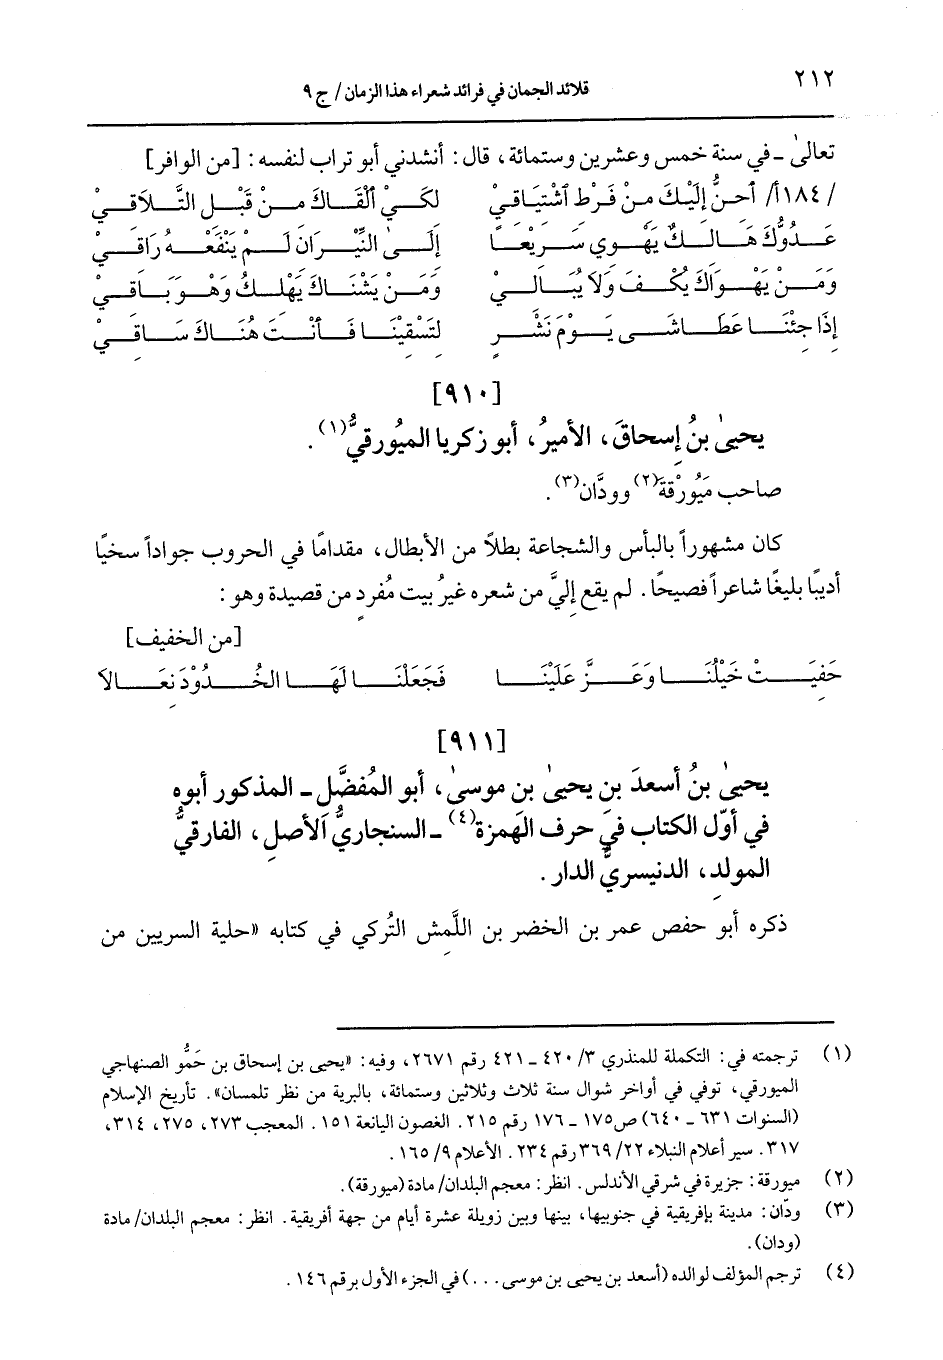 ٢١٢
قلائد الجمان في فرائد شعراء هذا الزمان/ ج ٩
تعالىٰ ـ في سنة خمس وعشرين وستمائة، قال: أنشدني أبو تراب لنفسه: [من الوافر]
/١٨٤أ/ أَحِنُّ إِلَيْكَ مِنْ فَرْطِ ٱشْتِيَاقِيْ لِكَيْ أَلْقَاكَ مِنْ قَبْلِ التَّلَاقِيْ
عَدُوُّكَ هَالِكٌ يَهْوِي سَرِيْعَاً إِلَىٰ النِّيْرَانِ لَمْ يَنْفَعْهُ رَاقِيْ
وَمَنْ يَهْوَاكَ يُكْفَ وَلَا يُبَالِيْ وَمَنْ يَشْنَاكَ يَهْلِكُ وَهْوَ بَاقِيْ
إِذَا جِئْنَا عَطَاشَى يَوْمَ نَشْرٍ لِتَسْقِيْنَا فَأَنْتَ هُنَاكَ سَاقِيْ
[٩١٠]
يحيىٰ بنُ إسحاقَ، الأميرُ، أبو زكريا الميُورقيُّ(١).
صاحب مَيُورْقَة(٢) وودَّان(٣).
كان مشهوراً بالبأس والشجاعة بطلاً من الأبطال، مقدامًا في الحروب جواداً سخيًا
أديبًا بليغًا شاعراً فصيحًا. لم يقع إليَّ من شعره غيرُ بيت مُفردٍ من قصيدة وهو:
[من الخفيف]
حَفِيَتْ خَيْلُنَا وَعَزَّ عَلَيْنَا فَجَعَلْنَا لَهَا الخُدُوْدَ نِعَالَا
[٩١١]
يحيىٰ بنُ أسعدَ بن يحيىٰ بن موسىٰ، أبو المُفضَّل ـ المذكور أبوه
في أوّل الكتاب في حرف الهَمزة(٤) ـ السنجاريُّ الأصلِ، الفارقيُّ
المولد، الدنيسريُّ الدار.
ذكره أبو حفص عمر بن الخضر بن اللَّمش التُركي في كتابه «حلية السريين من
(١) ترجمته في: التكملة للمنذري ٣/ ٤٢٠ ـ ٤٢١ رقم ٢٦٧١، وفيه: «يحيى بن إسحاق بن حَمُّو الصنهاجي
الميورقي، توفي في أواخر شوال سنة ثلاث وثلاثين وستمائة، بالبرية من نظر تلمسان». تأريخ الإسلام
(السنوات ٦٣١ ـ ٦٤٠) ص١٧٥ ـ ١٧٦ رقم ٢١٥. الغصون اليانعة ١٥١. المعجب ٢٧٣، ٢٧٥، ٣١٤،
٣١٧. سير أعلام النبلاء ٢٢/ ٣٦٩ رقم ٢٣٤. الأعلام ٩/ ١٦٥.
(٢) ميورقة: جزيرة في شرقي الأندلس. انظر: معجم البلدان/ مادة (ميورقة).
(٣) ودّان: مدينة بإفريقية في جنوبيها، بينها وبين زويلة عشرة أيام من جهة أفريقية. انظر: معجم البلدان/ مادة
(ودان).
(٤) ترجم المؤلف لوالده (أسعد بن يحيى بن موسى...) في الجزء الأول برقم ١٤٦.